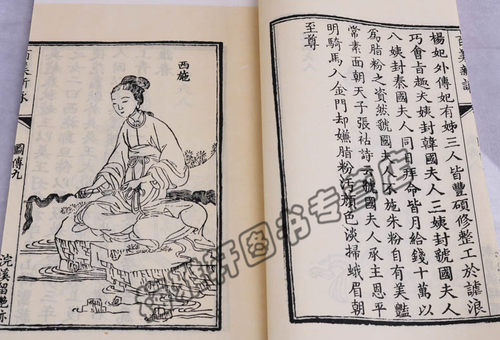 百美新詠
楊妃外傳妃有姊三人皆豐碩修整工於謔浪
巧會旨趣大姨封韓國夫人三姨封虢國夫人
八姨封秦國夫人同日拜命皆月給錢十萬以
為脂粉之資然虢國夫人不施朱粉自有美艷
常素面朝天子張祜詩云虢國夫人承主恩平
明騎馬入金門却嫌脂粉污顏色淡掃蛾眉朝
至尊
西施
百美新詠
圖傳九
浣溪留艷迹
轩图书专营店